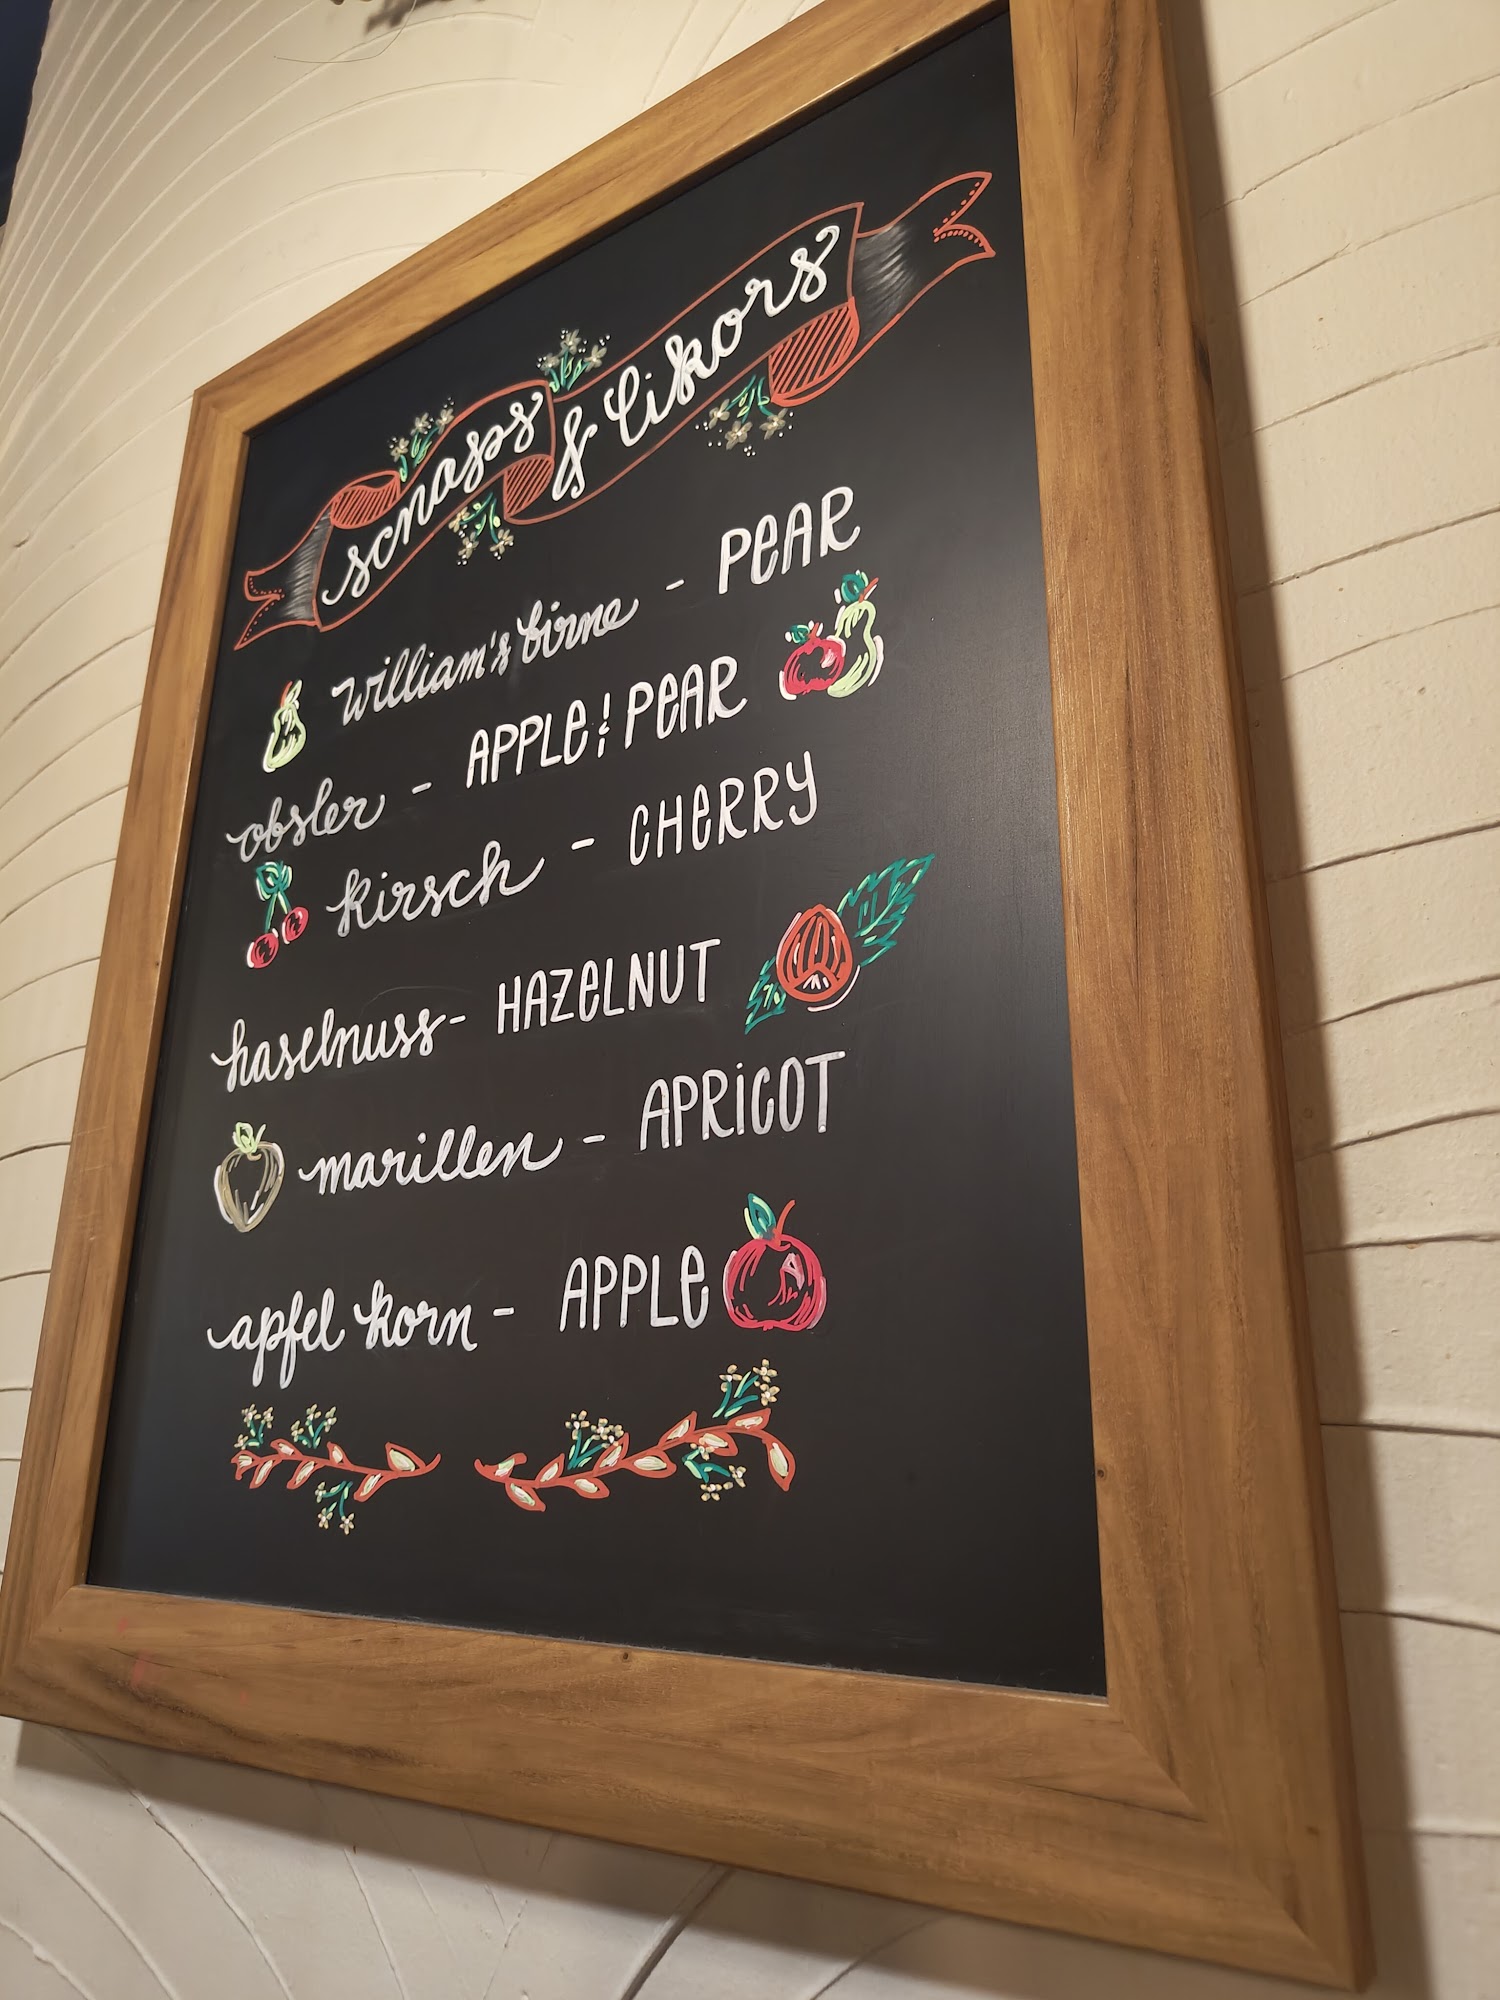 scnaps & likors
william's birne - PEAR
obsler - APPLE & PEAR
kirsch - CHERRY
haselnuss - HAZELNUT
marillen - APRICOT
apfel korn - APPLE